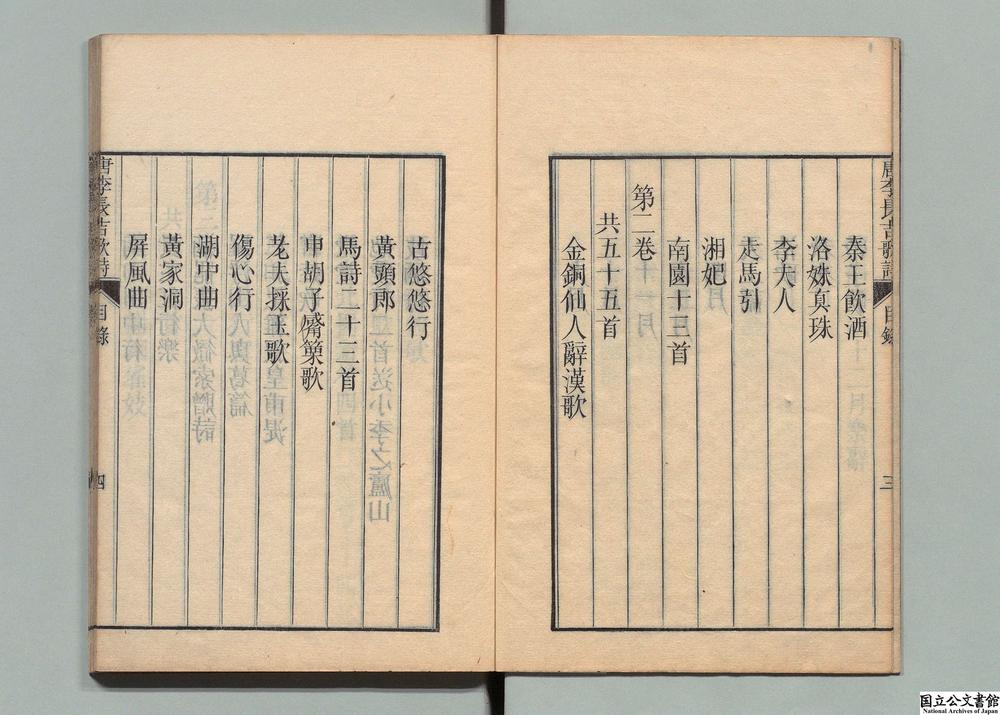 唐李長吉歌詩
目錄
三
秦王飲酒
洛姝真珠
李夫人
走馬引
湘妃
南園十三首
第二卷
共五十五首
金銅仙人辭漢歌
古悠悠行
黃頭郎
馬詩二十三首
申胡子觱篥歌
老夫採玉歌
傷心行
湖中曲
黃家洞
屏風曲
唐李長吉歌詩
目錄
四
国立公文書館
National Archives of Japan